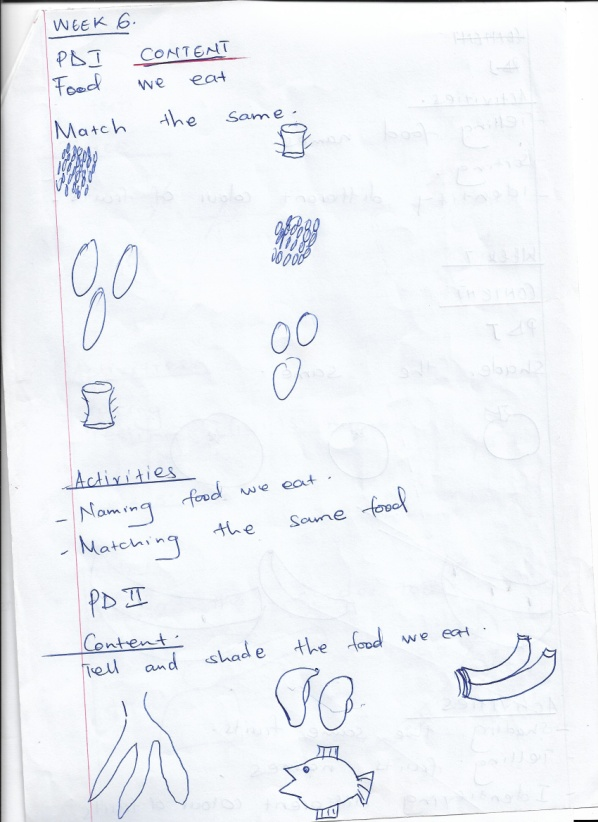 WEEK 6.
PD I CONTENT
Food we eat
Match the same.
Activities
- Naming food we eat.
- Matching the same food
PD II
Content.
Tell and shade the food we eat.